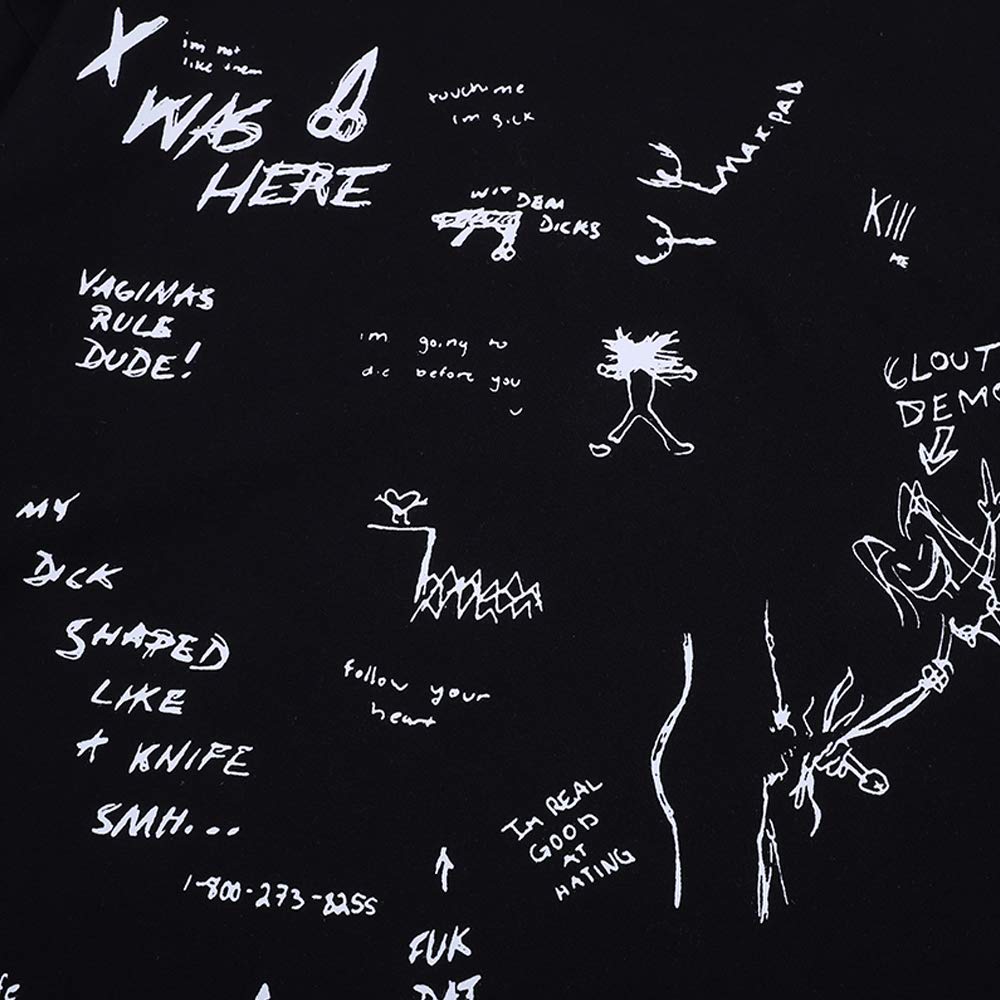 X
im not
like them
WAS
HERE
touch me
im sick
MAX.PAD
WIT DEM
DICKS
KIII
ME
VAGINAS
RULE
DUDE!
im going to
die before you
CLOUT
DEMO
MY
DICK
SHAPED
LIKE
A KNIFE
SMH...
follow your
heart
IM REAL
GOOD
AT
HATING
1-800-273-8255
FUK
DAT